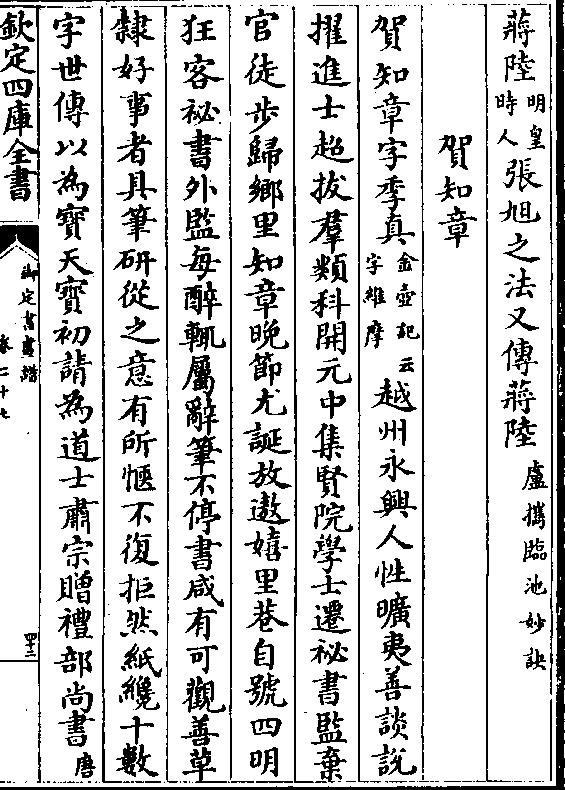 蔣陸明皇時人張旭之法又傳蔣陸盧攜臨池妙訣
賀知章
賀知章字季真金壺記云字維摩越州永興人性曠夷善談說
擢進士超拔羣類科開元中集賢院學士遷祕書監棄
官徒步歸鄉里知章晚節尤誕放遨嬉里巷自號四明
狂客祕書外監每醉輒屬辭筆不停書咸有可觀善草
隸好事者具筆研從之意有所愜不復拒然紙纔十數
字世傳以為寶天寶初請為道士肅宗贈禮部尚書唐
欽定四庫全書
御定書畫譜
卷二十七
四十三